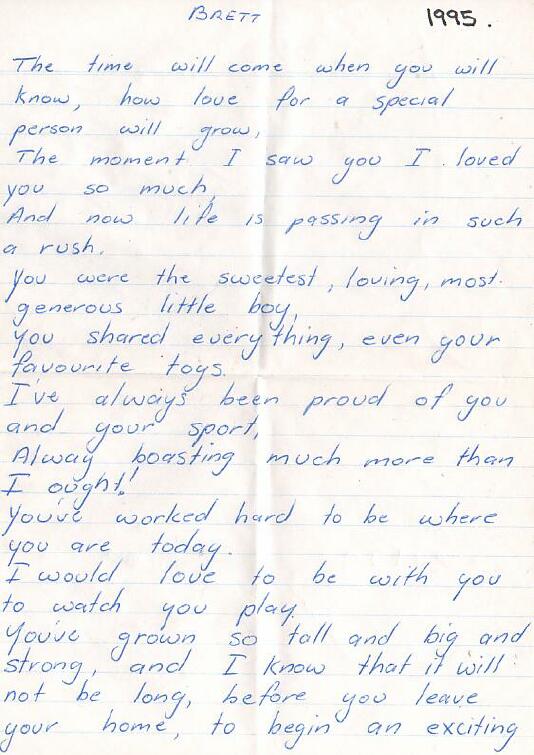 BRETT 1995.
The time will come when you will
know, how love for a special
person will grow,
The moment I saw you I loved
you so much,
And now life is passing in such
a rush.
You were the sweetest, loving, most
generous little boy,
you shared everything, even your
favourite toys.
I've always been proud of you
and your sport,
Alway boasting much more than
I ought!
You've worked hard to be where
you are today.
I would love to be with you
to watch you play.
You've grown so tall and big and
strong, and I know that it will
not be long, before you leave
your home, to begin an exciting